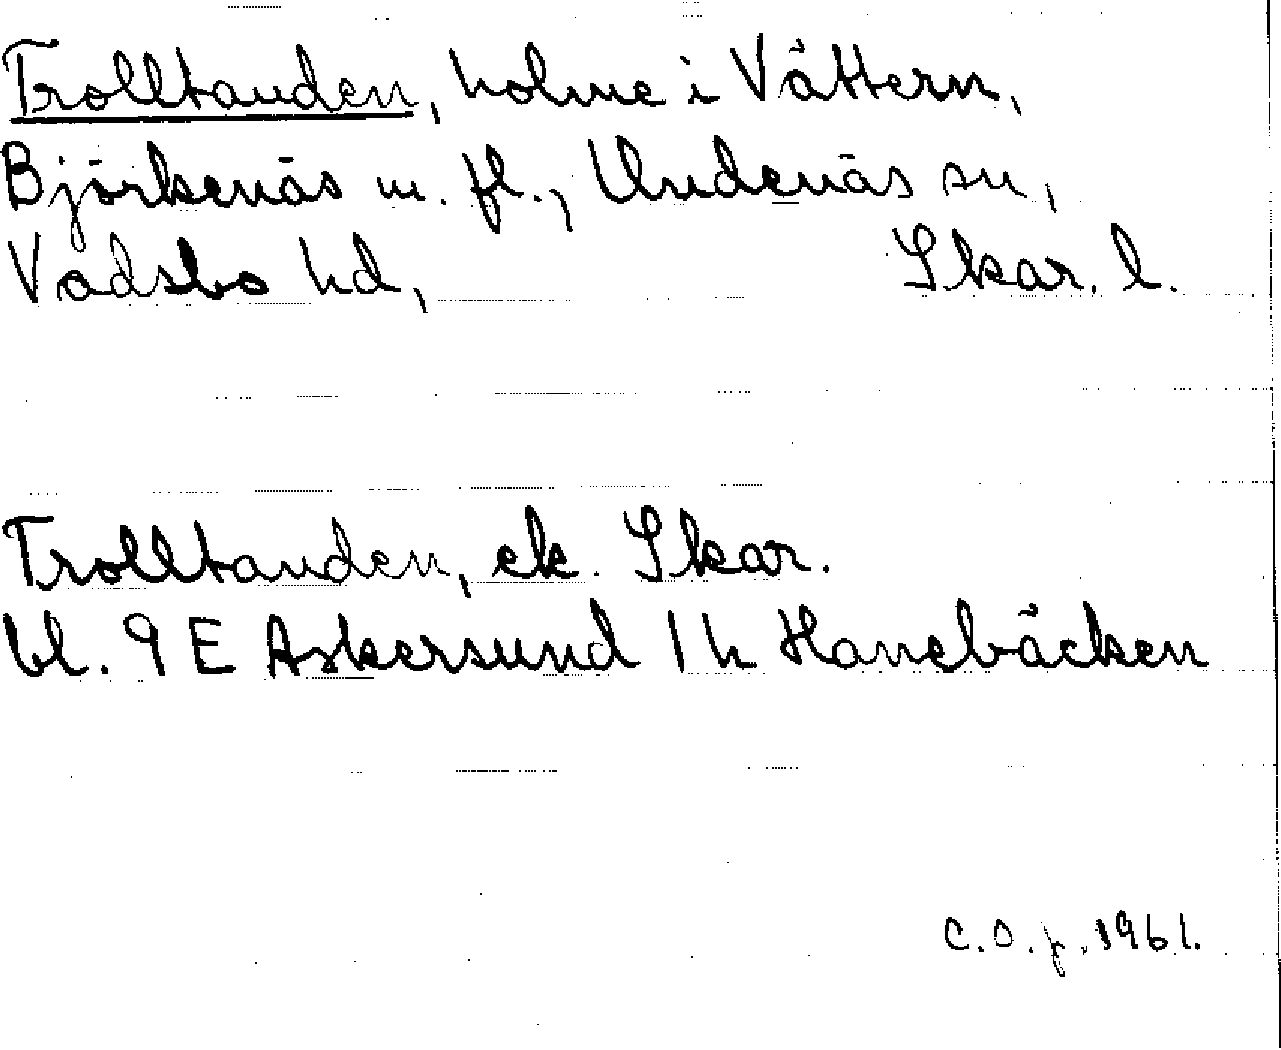 Trolltanden, holme i Vättern,
Björkenäs m. fl., Undenäs sn,
Vadsbo hd, Skar. l.
Trolltanden, ek. Skar.
bl. 9 E Askersund 1 h Hanebäcken
C.O.f. 1961.